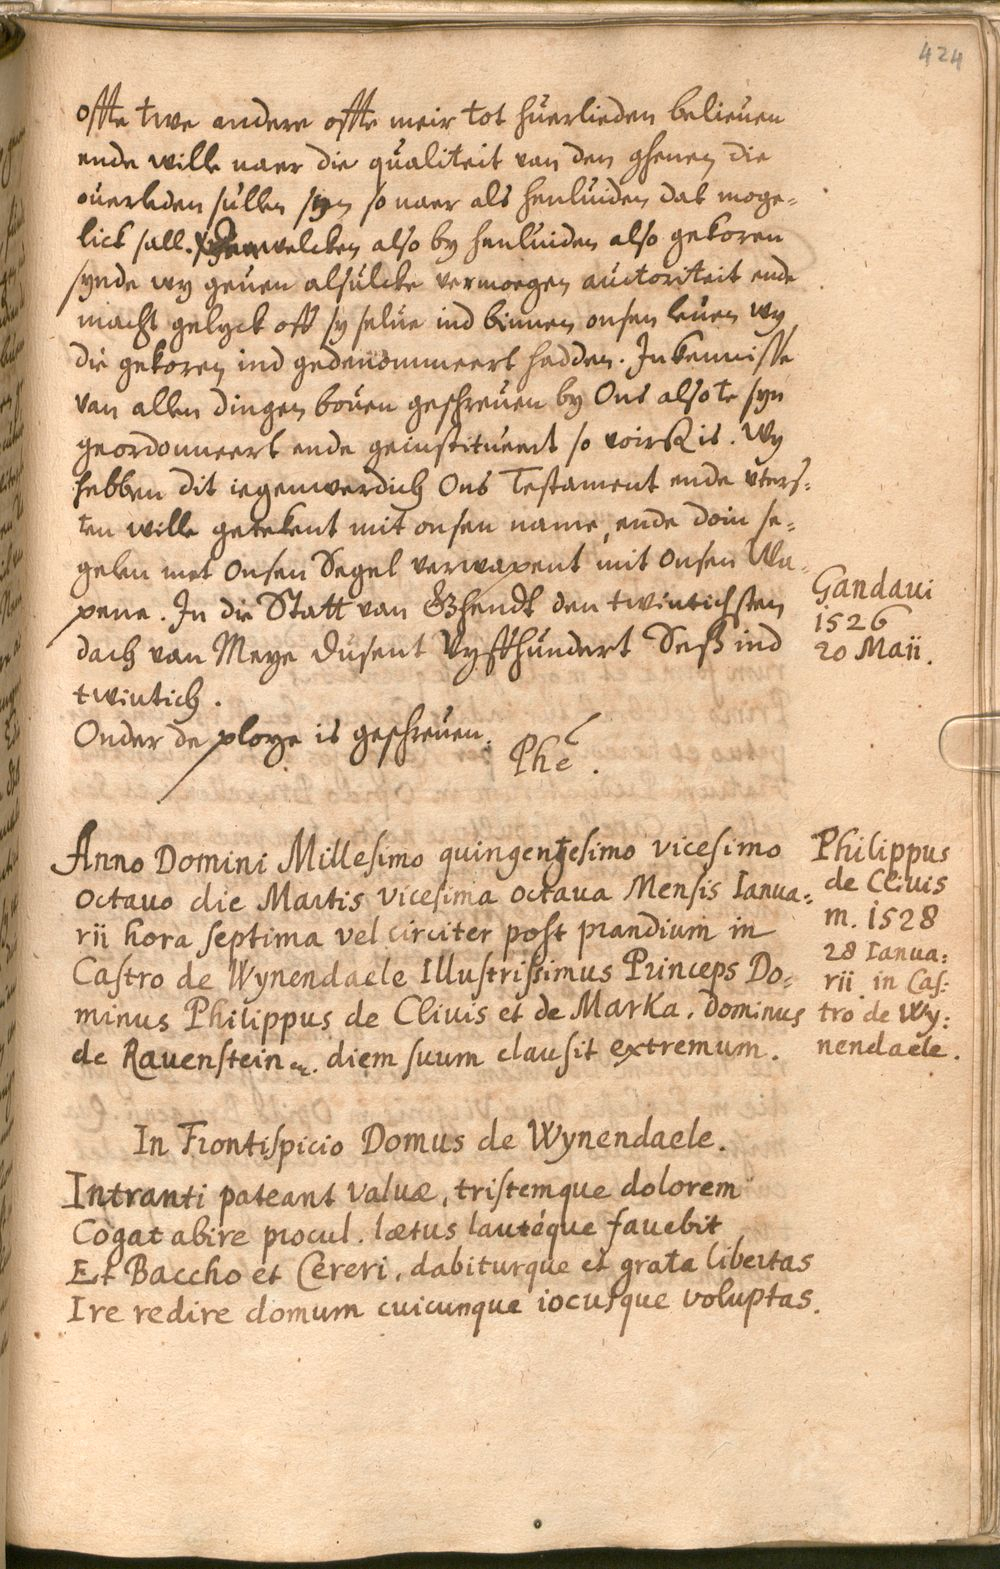 424
offte twe andere offte meir tot huerlieden belieuen
ende wille naer die qualiteit van den ghenen die
ouerleden sullen syn so naer als henluiden dat moge=
lick sall. welcken also by henluiden also gekoren
synde wy geuen alsulcke vermoegen auctoriteit ende
macht gelyck off sy selue ind binnen onsen leuen wy
die gekoren ind gedenommeert hadden. In kennisse
van allen dingen bouen geschreuen by Ons also te syn
geordonneert ende geinstitueert so voirß is. Wy
hebben dit iegenwerdich Ons Testament ende uters=
ten wille getekent mit onsen name, ende doin se=
gelen met Onsen Segel verwapent mit Onsen Wa=
pene. In die Statt van Ghendt den twintichsten
dach van Meye dusent Vyffhundert Seß ind
twintich.
Gandaui
1526
20 Maii.
Onder de ploye is geschreuen.
Phē.
Anno Domini Millesimo quingentesimo vicesimo
octauo die Martis vicesima octaua Mensis Ianua=
rii hora septima vel circiter post prandium in
Castro de Wynendaele Illustrissimus Princeps Do=
minus Philippus de Cliuis et de Marka. Dominus
de Rauenstein etc. diem suum clausit extremum.
Philippus
de Cliuis
m. 1528
28 Ianua:
rii in Cas:
tro de Wy:
nendaele.
In Frontispicio Domus de Wynendaele.
Intranti pateant valuæ, tristemque dolorem
Cogat abire procul. lætus lautéque fauebit
Et Baccho et Cereri, dabiturque et grata libertas
Ire redire domum cuicunque iocusque voluptas.